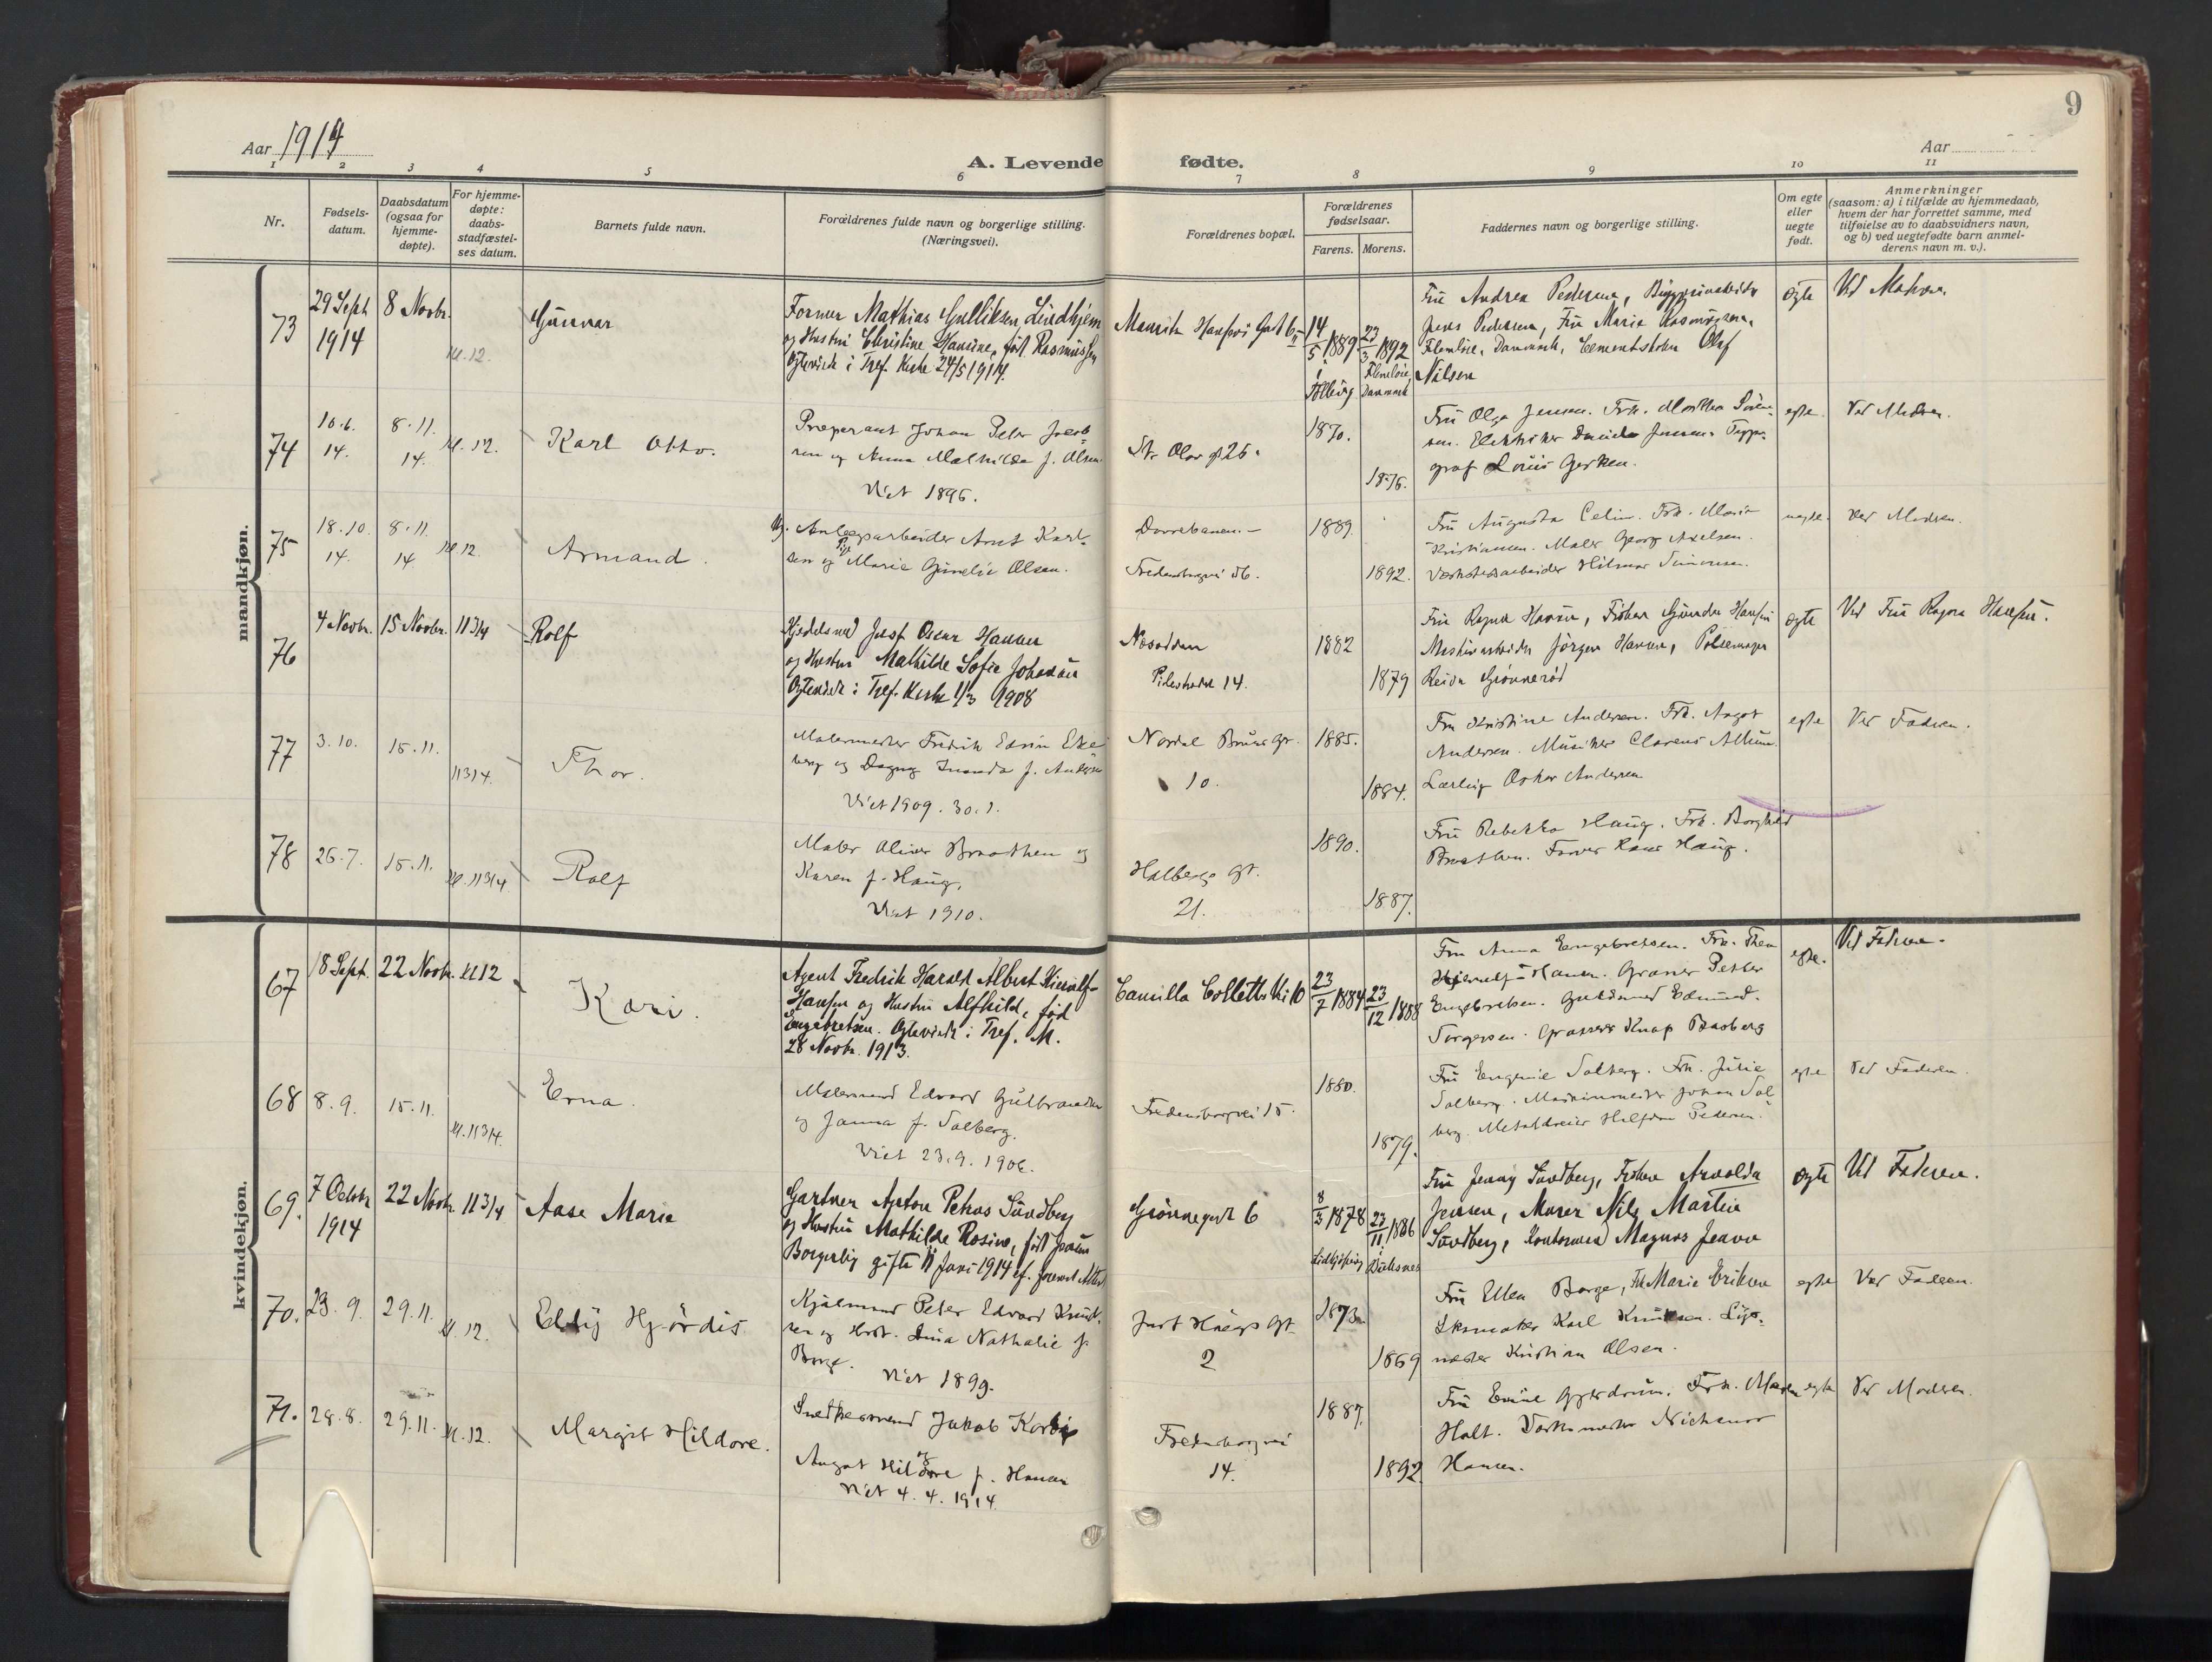 Aar 1914
A. Levende fødte.
9
Aar
1 2 3 4 5 6 7 8 9 10 11
Nr.
Fødsels-
datum.
Daabsdatum
(ogsaa for
hjemme-
døpte).
For hjemme-
døpte:
daabs-
stadfæstel-
ses datum.
Barnets fulde navn.
Forældrenes fulde navn og borgerlige stilling.
(Næringsvei).
Forældrenes bopæl.
Forældrenes
fødselsaar.
Farens. Morens.
Faddernes navn og borgerlige stilling.
Om egte
eller
uegte
født.
Anmerkninger
(saasom: a) i tilfælde av hjemmedaab,
hvem der har forrettet samme, med
tilføielse av to daabsvidners navn,
og b) ved uegtefødte barn anmel-
derens navn m. v.).
mandkjøn.
73
29 Sept
1914
8 Novbr.
M.12.
Gunnar
Former Mathias Gulliksen Lindhjem
og Hustru Christine Hansine, født Rasmussen
Egteviede i Tref. Kirke 24/5 1914.
14/5 1889
23/3 1892
Danmark
Fru Andrea Pedersen,
Jens Pedersen, Fru Maria Rasmussen,
Danmark, Olaf
Nilsen
egte
Ved Moderen.
74
10.6.
14.
8.11.
14.
M.12.
Karl Otto.
Preperant Johan Peter Jacob-
sen og Anna Mathilde f. Olsen.
Viet 1896.
St. Olav g 25.
1870.
1876.
Fru Olga Jensen. Frk. Martha Soren-
sen. Elektriker Daniel Jensen. Typo-
graf Louis Gerken.
egte.
Ved Moderen.
75
18.10.
14.
8.11.
14
M.12.
Armand.
Ug. Anlægsarbeider Arnt Karl-
sen og Pige Marie Gunelie Olsen.
Dovrebanen.
Fredensborgvei 56.
1889.
1892.
Fru Augusta Celin. Frk. Maria
Kristiansen. Maler Georg Axelsen.
Værkstedsarbeider Hilmar Simonsen.
uegte.
Ved Moderen.
76
4 Novbr.
15 Novbr.
113/4
Rolf
Kjedelsmed Just Oscar Hansen
og Hustru Mathilde Sofie Johansen
Egteviede i Tref. Kirke 1/3 1908
Nesodden
Pilestrædet 14.
1882
1879
Fru Ragna Hansen, Frøken Gunda Hansen
Maskinarbeider Jørgen Hansen, Pølsemager
Reidar Grønnerød
egte
Ved Fru Ragna Hansen.
77
3.10.
15.11.
113/4.
Thor.
Malermester Fredrik Edvin Eke-
berg og Dagny Inanda f. Andersen
Viet 1909. 30.1.
Nordal Bruns gt.
10.
1885.
1884.
Fru Kristine Andersen. Frk. Aagot
Andersen. Musiker Clarens Allum.
Lærling Oskar Andersen
egte
Ved Faderen.
78
26.7.
15.11.
M.113/4.
Rolf
Maler Oliver Braathen og
Karen f. Haug.
Viet 1910.
Holbergs gt.
21.
1890.
1887.
Fru Rebekka Haug. Frk. Borghild
Braathen. Farver Hans Haug.
kvindekjøn.
67
18 Sept.
22 Novbr.
M12
Kari.
Agent Fredrik Harald Albert Hieralf-
Hansen og Hustru Alfhild, fød
Engebretsen. Egteviede i Tref. M.
28 Novbr. 1913.
Camilla Colletts Vei 10
23/7 1884
23/12 1888
Fru Anna Engebretsen. Frk. Thea
Hansen. Gravør Petter
Engebretsen. Guldsmed Edmund.
Torgersen. Grosserer Knap Brasberg
egte.
Ved Faderen.
68
8.9.
15.11.
M.113/4.
Erna.
Malersvend Edvard Gulbrandsen
og Janna f. Solberg.
Viet 23.9.1906.
Fredensborgvei 15.
1880.
1879.
Fru Engenie Solberg. Frk. Julie
Solberg. Maskinmester Johan Sol-
berg. Metaldreier Halfdan Pedersen.
egte
Ved Faderen.
69.
7 Octobr
1914
22 Novbr.
113/4
Aase Marie
Gartner Anton Petrus Sundberg
og Hustru Mathilde Rosine, født Jensen
Borgerlig gifte 11 Juni 1914 ef. forevist Attest
Grønnegade 6
8/3 1878
Lidkjøping
23/11 1886
Fru Jenny Sundberg, Frøken Arvolda
Jensen, Murer Nils Martin
Sundberg, Kontormand Magnus Jensen
egte
Ved Faderen.
70.
23.9.
29.11.
M.12.
Elly Hjørdis
Kjølemand Peter Edvard Knud-
sen og Hust. Lina Nathalie f.
Borge.
Viet 1899.
Just Høegs gt.
2
1873.
1869
Fru Ellen Borge, Frk Marie Eriksen
Skomaker Karl Knudsen.
Kristian Olsen.
egte
Ved Faderen.
71.
28.8.
29.11.
M.12.
Margit Hildore.
Snedkersvend Jakob Korbi
og
Aagot Hildore f. Hansen
Viet 4.4.1914.
Fredensborgvei
14.
1887.
1892.
Fru Emine Gjerdrum. Frk. Maren
Holt. Værkmester Nickanor
Hansen.
egte
Ved Moderen.